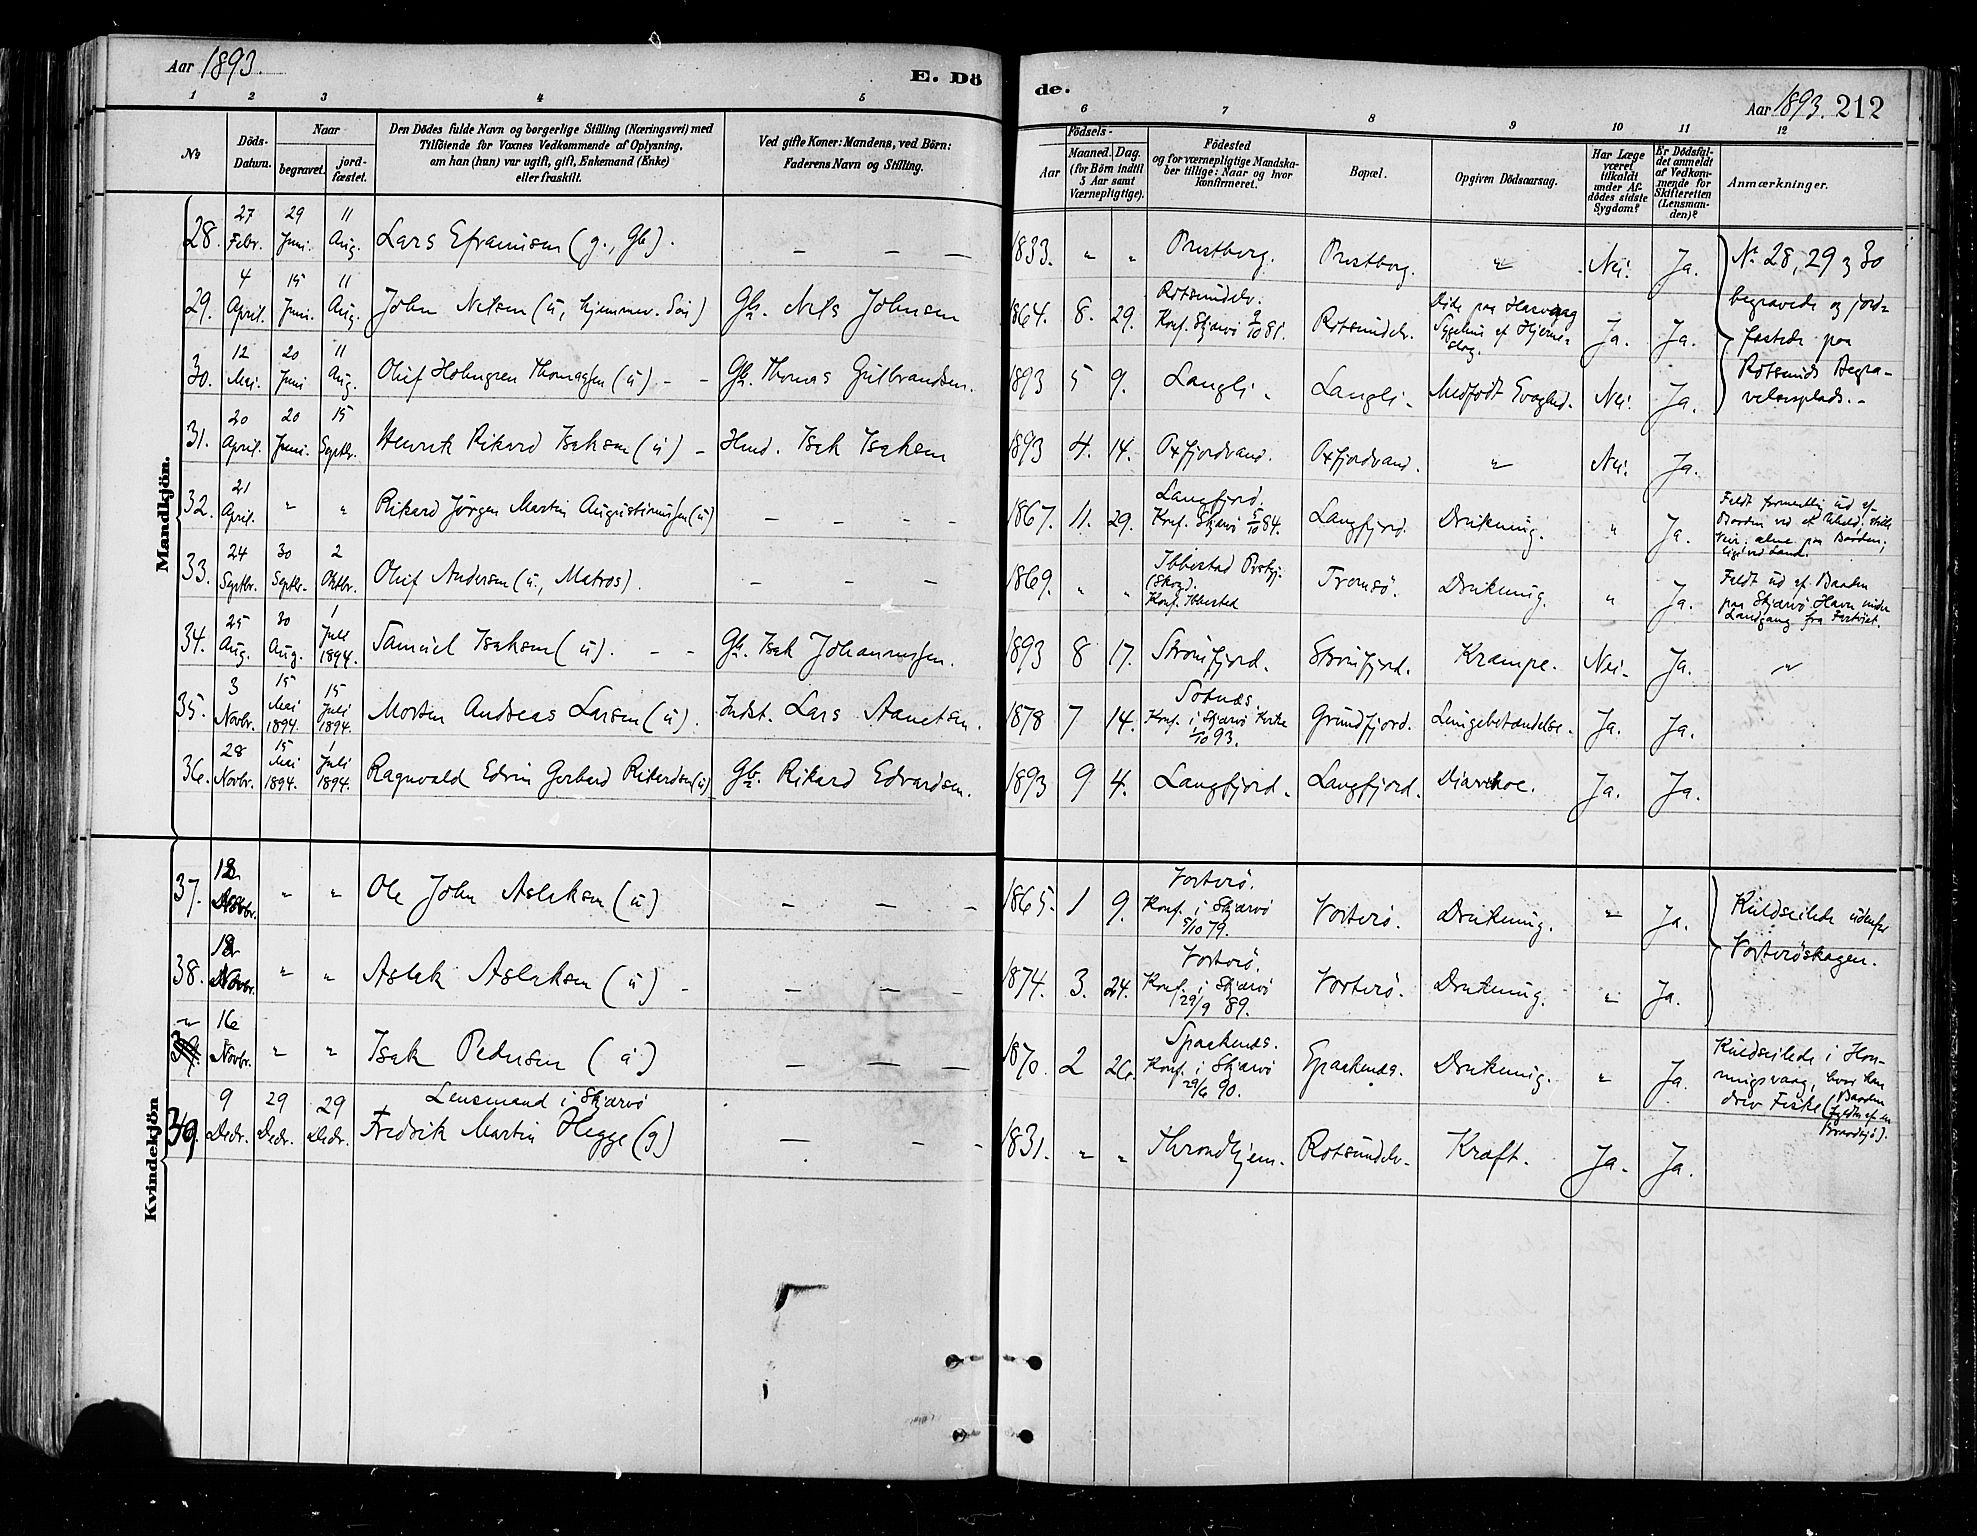 Aar 1893.
E. Dö
de.
Aar 1893. 212
1 2 3 4 5 6 7 8 9 10 11 12
No
Döds-Datum.
Naar
begravet.
jordfæstet.
Den Dödes fulde Navn og borgerlige Stilling (Næringsvei) med
Tilföiende for Voxnes Vedkommende af Oplysning,
om han (hun) var ugift, gift, Enkemand (Enke)
eller fraskilt.
Ved gifte Koner: Mandens, ved Börn:
Faderens Navn og Stilling.
Födsels-
Aar
Maaned. Dag.
(for Börn indtil
5 Aar samt
Værnepligtige).
Födested
og for værnepligtige Mandskaber tillige: Naar og hvor
konfirmeret.
Bopæl.
Opgiven Dödsaarsag.
Har Læge
været
tilkaldt
under Afdödes sidste
Sygdom?
Er Dödsfaldet anmeldt
af Vedkommende for
Skifteretten
(Lensmanden)?
Anmærkninger.
Mandkjön.
28. 27 Febr. 29 Juni. 11 Aug. Lars Efraimsen (g., Gb). — — — 1833. " " Præstberg. Præstberg. " Nei. Ja. No 28, 29 & 30
29. 4 April. 15 Juni. 11 Aug. John Nilsen (ü, hjemmev. Sön) Gb. Nils Johnsen 1864. 8. 29. Rotsundelv. Konf. Skjærvö 2/10 81. Rotsundelv. Döde paa Sygehus af Hjerneslag. Ja. Ja. begravede og jordfæstede paa
30. 12 Mai. 20 Juni 11 Aug. Oluf Holmgren Thomassen (ü) - - Gb. Thomas Gulbrandsen. 1893 5 9. Langli - Langli - Medfödt Svaghed. Nei. Ja. Rotsunds Begravelsesplads. -
31. 20 April. 20 Juni. 15 Septbr. Henrik Rikard Isaksen (ü) - Hmd. Isak Isaksen 1893 4. 14. Oxfjordvand. Oxfjordvand. " Nei. Ja.
32. 21 April. " " Rikard Jörgen Martin Augustinussen (ü) — - - - 1867. 11. 29. Langfjord. Konf. Skjærvö 5/10 84. Langfjord. Drukning. " Ja. Faldt formentlig ud af Baaden ved et Uheld, stille Veir, alene paa Baaden, lige ved Land.
33. 24 Septbr. 30 Septbr. 2 Oktbr. Oluf Andersen (ü., Matros). — — — 1869. " " Ibbestad Prstgj. (Skog). Konf. Ibbestad Tromsö. Drukning. " Ja. Faldt ud af Baaden paa Skjærvö Havn under Landgang fra Fartöiet.
34. 25 Aug. 30 Aug. 1 Juli 1894. Samuel Isaksen (ü). - - Gb. Isak Johannessen. 1893 8 17. Strömfjord. Strömfjord. Krampe. Nei. Ja. "
35. 3 Novbr. 15 Mai 1894. 15 Juli 1894. Morten Andreas Larsen (ü). Indst. Lars Aanetsen. 1878 7 14. Sotnæs. Konf. i Skjærvö Kirke 1/10 93. Grundfjord. Lungebetændelse. Ja. Ja.
36. 28 Novbr. 15 Mai 1894. 1 Juli 1894. Ragnvald Edvin Gerhard Rikardsen (ü) Gb. Rikard Edvardsen. 1893 9 4. Langfjord. Langfjord. Diarrhoe. Ja. Ja.
Kvindekjön
37. Novbr. " " Ole John Aslaksen (ü) — — — 1865. 1 9. Vorterö. Konf. i Skjærvö 5/10 79. Vorterö. Drukning. " Ja. Kuldseilede udenfor
38. Novbr. " " Aslak Aslaksen (ü) - — — — 1874. 3. 24. Vorterö. Konf. i Skjærvö 29/9 89. Vorterö. Drukning. " Ja. Vorteröskagen.
" 16 Novbr. " " Isak Pedersen (ü) — — — 1870. 2 26. Spaakenæs. Konf. i Skjærvö 29/6 90. Spaakenæs. Drukning. " Ja. Kuldseilede i Honningsvaag, hvor han drev Fiske (Baaden fyldtes af en Braadsjö).
39. 9 Decbr. 29 Decbr. 29 Decbr. Lensmand i Skjærvö Fredrik Martin Hegge (g) — - - 1831. " " Throndhjem. Rotsundelv. Kræft. Ja. Ja.